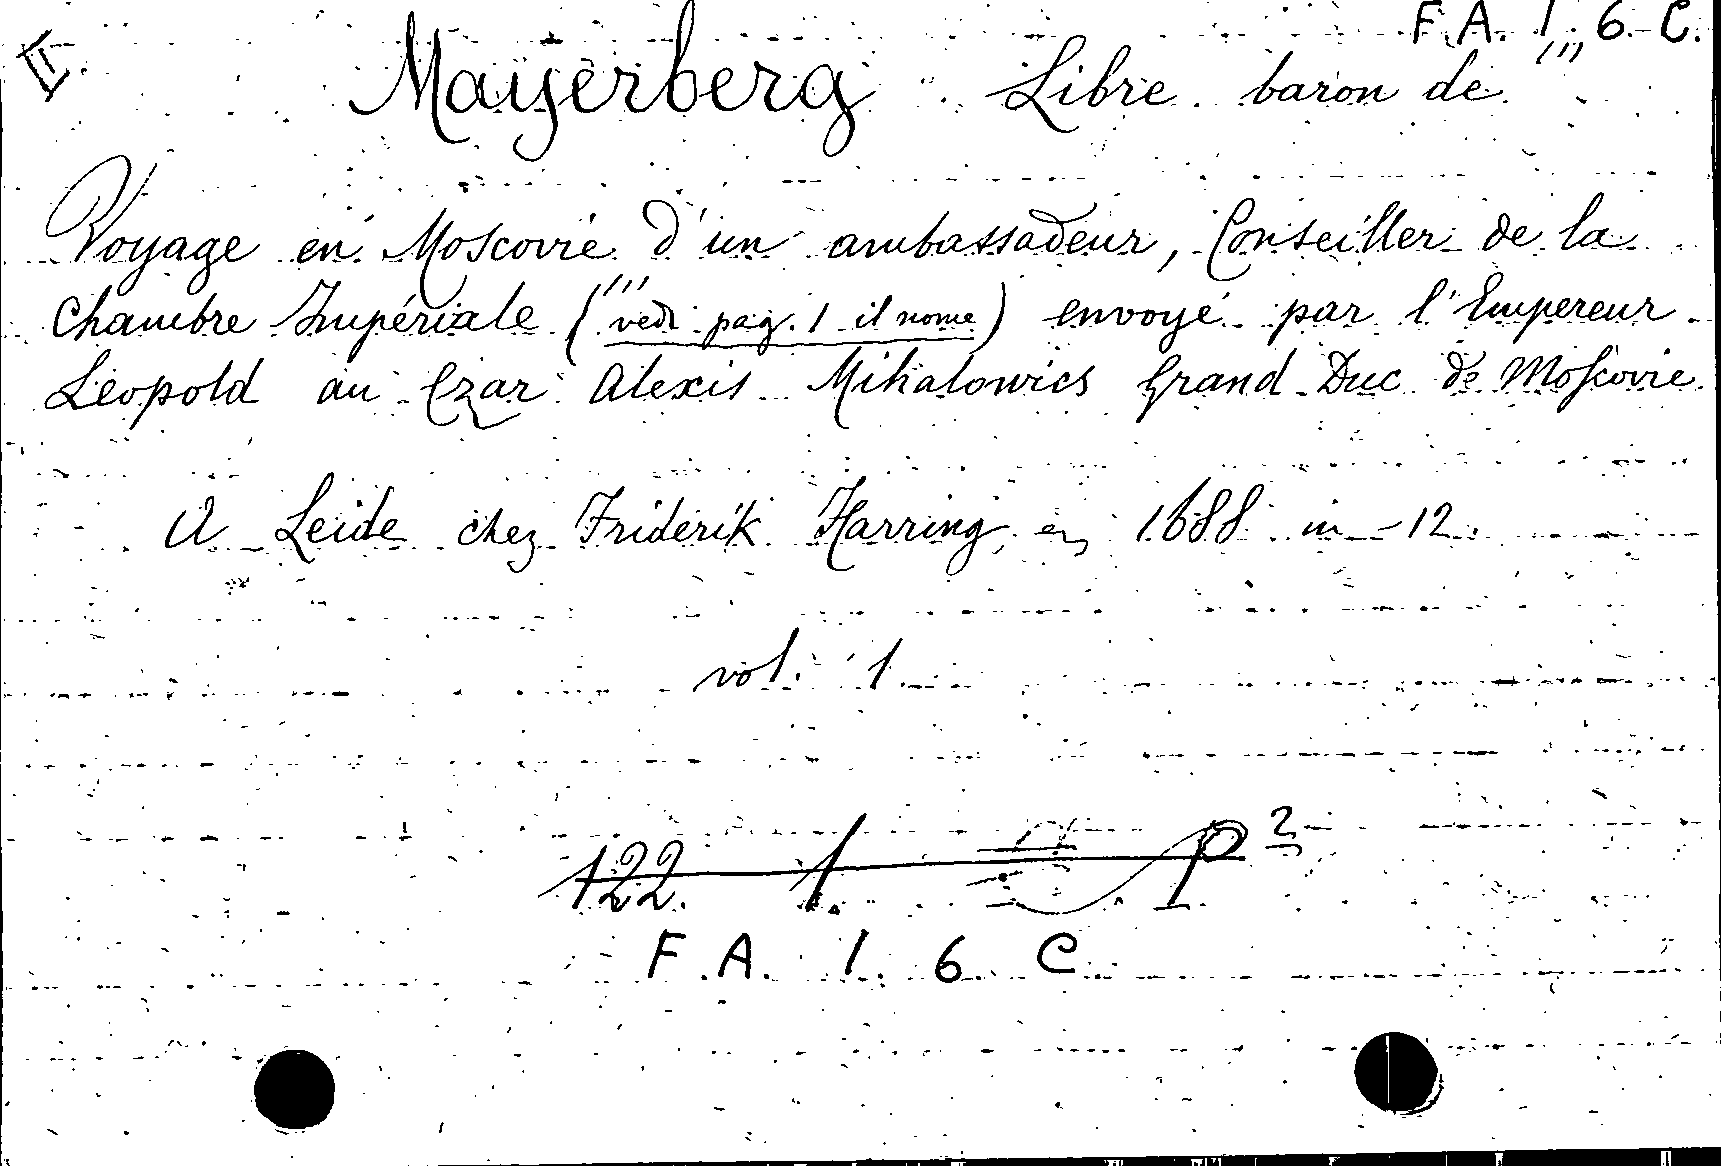 F. A. 1. 6. C.
II.
Mayerberg Libre baron de "'
Voyage en Moscovie d'un ambassadeur, Conseiller de la
Chambre Impériale ("' vedi pag. 1 il nome) envoyé par l'Empereur
Léopold au Czar Alexis Mihalowics Grand Duc de Moscovie.
A Leide chez Friderik Harring, en 1688 in-12.
vol. 1.
122. 1. P 2
F. A. 1. 6. C